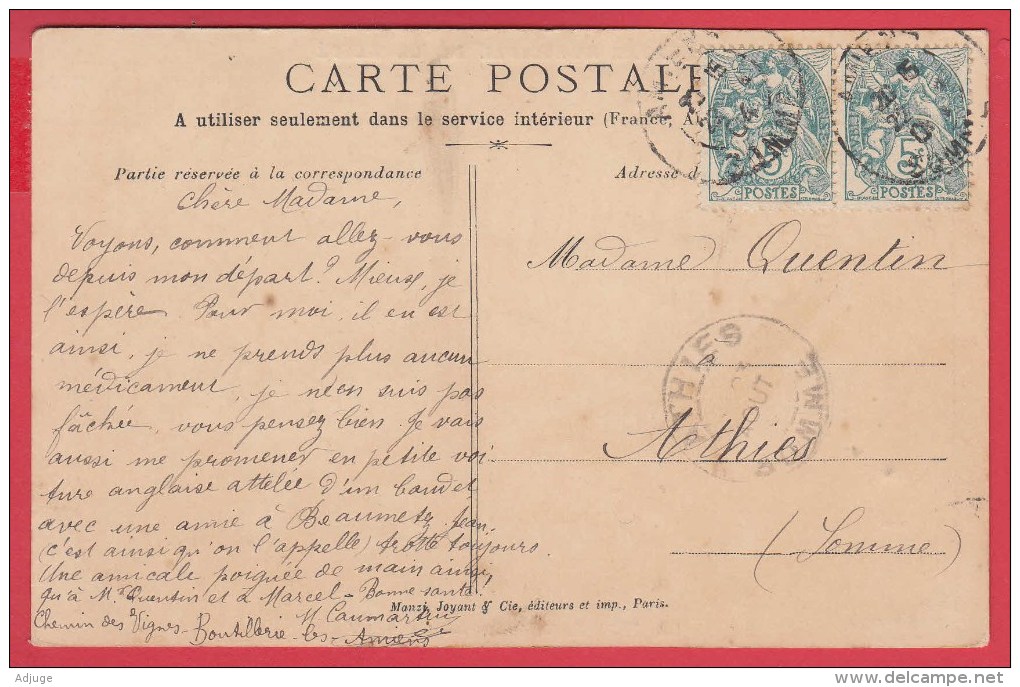 CARTE POSTALE
A utiliser seulement dans le service intérieur (France, A
Partie réservée à la correspondance
Adresse d
Chère Madame,
Voyons, comment allez-vous
depuis mon départ? Mieux, je
l'espère. Pour moi, il en est
ainsi, je ne prends plus aucun
médicament, je n'en suis pas
fâchée, vous pensez bien. Je vais
aussi me promener en petite voi
ture anglaise attelée d'un baudet
avec une amie à Beaumetz. Jean-
(c'est ainsi qu'on l'appelle) trotte toujours.
Une amicale poignée de main ainsi,
qu'à Mr Quentin et à Marcel - Bonne santé.
M Caumartin
Chemin des Vignes - Boutillerie-les-Amiens
Madame Quentin
à
Athies
(Somme)
Manzi, Joyant & Cie, éditeurs et imp., Paris.
5
POSTES
5
POSTES
ATHIES
SOMME
Adjuge
delcampe.net